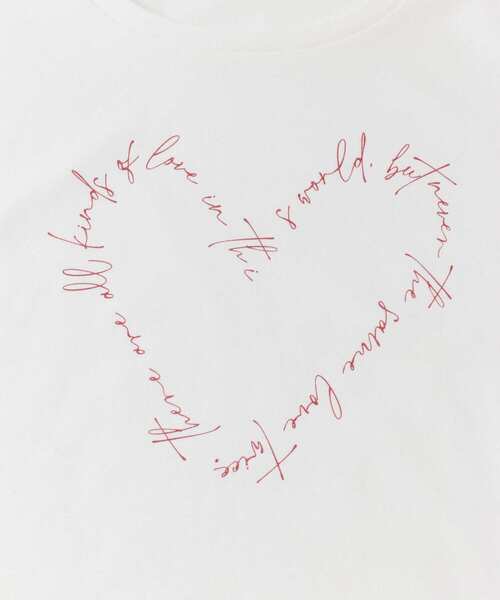 there are all kinds of love in this world. but never the same love twice.